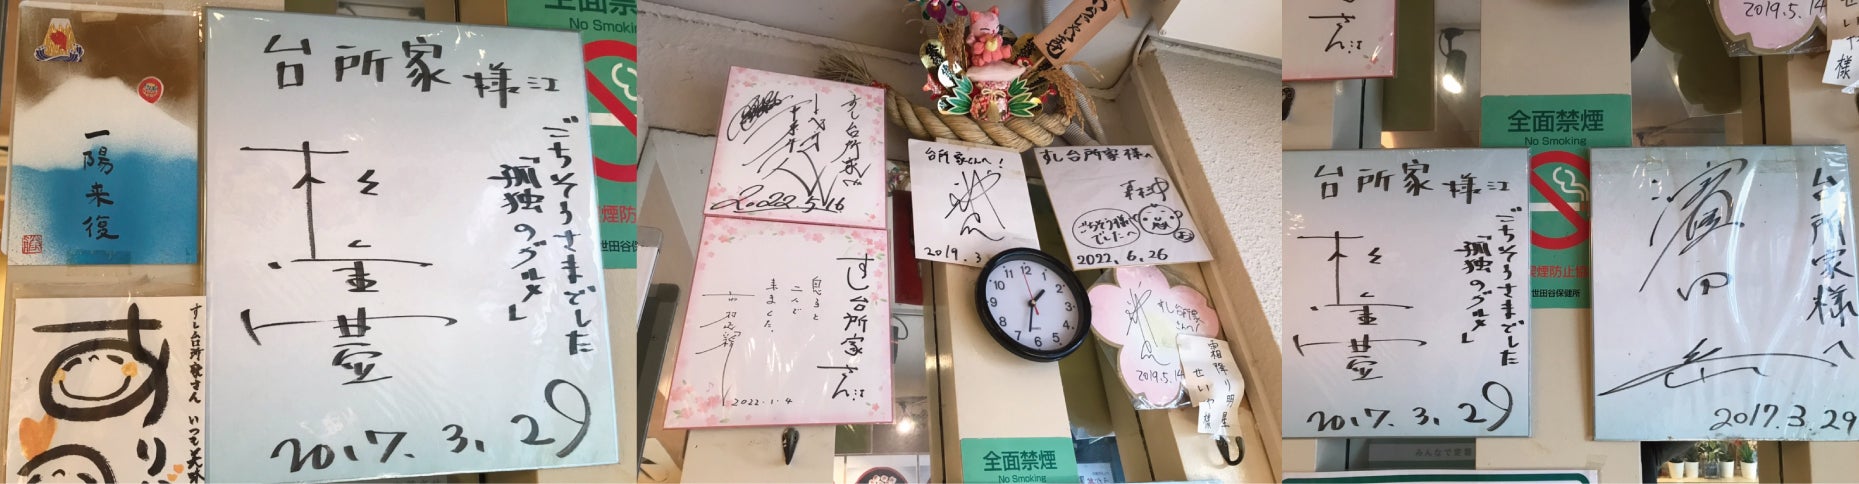 一陽来復
台所家様江
ごちそうさまでした
「孤独のグルメ」
松重豊
2017.3.29
全面禁煙
No Smoking
世田谷保健所
すし台所家さん いつも美味
あり
すし台所家さん
2022.5.16
すし台所家さん江
息子と
二人で
来ました。
2022.1.4
台所家さんへ!
2019.3
すし台所家様へ
ごちそう様
でしたへ
2022.6.26
12
1
2
3
4
5
6
7
8
9
10
11
すし台所家
さんへ!
2019.5.14
霜降り明星
せいや様
全面禁煙
No Smoking
さん江
2019.5.14
せいや
様
全面禁煙
No Smoking
煙防止
世田谷保健所
台所家様江
ごちそうさまでした
「孤独のグルメ」
松重豊
2017.3.29
台所家様へ
濱田岳
2017.3.29
みんなで